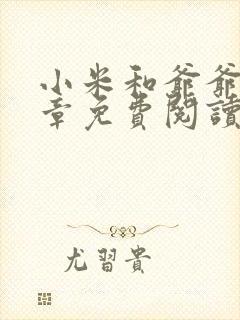 小米和爺爺
章免費閱讀
尤習貴